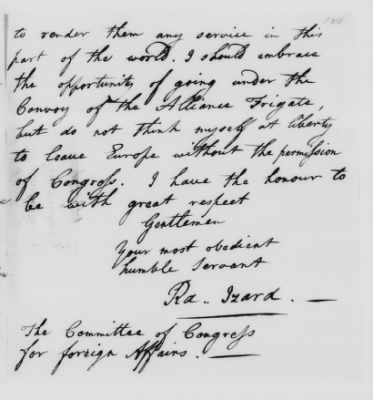 to render them any service in this
part of the world. I should embrace
the opportunity of going under the
Convoy of the Alliance Frigate,
but do not think myself at liberty
to leave Europe without the permission
of Congress. I have the honour to
be with great respect
Gentlemen
Your most obedient
humble Servant
Ra.. Izard.
The Committee of Congress
for foreign Affairs.